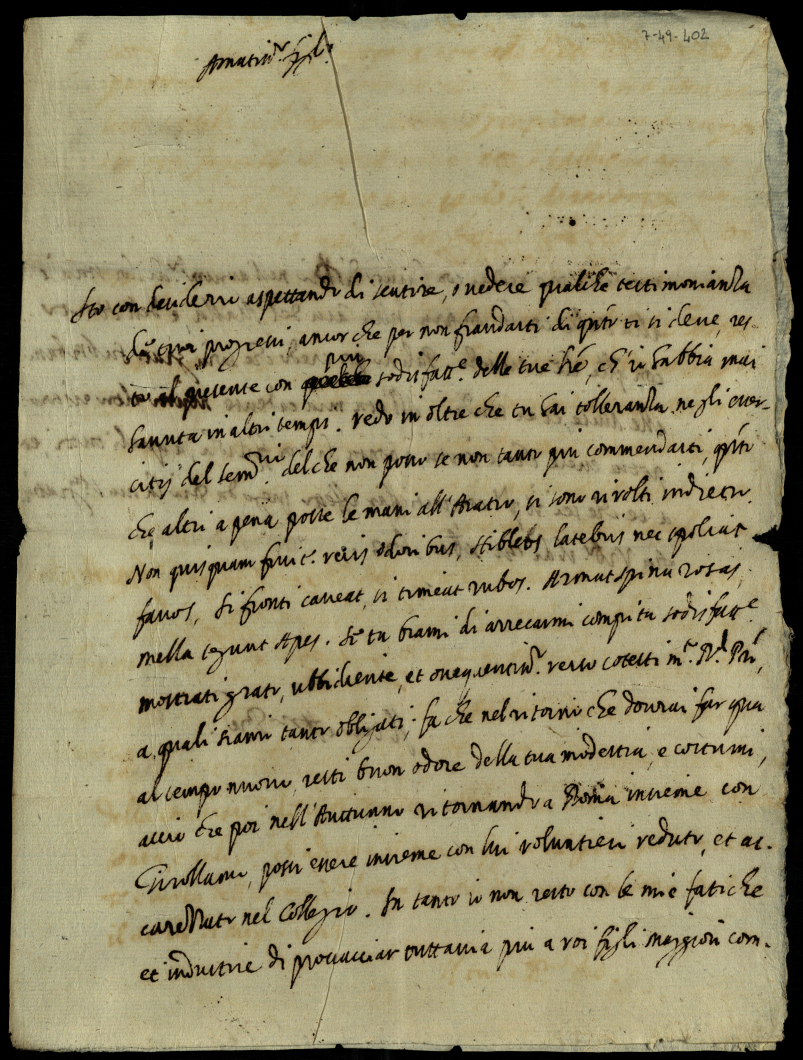 7-49-402
Amatiss.o fig.lo
Sto con desiderio aspettando di sentire, o vedere qualche testimonianza
de tuoi progressi, ancor che per non fraudarti di q.to ti si deve, res-
to al presente con più sodisfatt.e delle tue l.re, ch'io habbia mai
havuta in altri tempi. Vedo in oltre che tu hai tolleranza negli eser-
citij del Sem.rio del che non posso se non tanto più commendarti, q.to
che altri a pena poste le mani all'Aratro, si sono rivolti indietro.
Non quisquam fruit.r veris odoribus, Hiblebs latebris nec spoliat
favos, Si fronti caveat, si timeat rubos. Armat spina rosas,
mella tegunt Apes. Se tu brami di arrecarmi compita sodisfatt.e
mostrati grato, ubbidiente, et ossequentiss.o verso cotesti m.to R.di P.ri,
a quali siamo tanto obligati; fa che nel ritorno che dovrai far qua
al tempo nuovo, resti buon odore della tua modestia, e costumi,
acciò che poi nell'Auttunno ritornando a Roma insieme con
Girollamo, possi essere insieme con lui voluntieri veduto, et ac-
carezzato nel Collegio. In tanto io non resto con le mie fatiche
et industrie di procacciar tuttavia più a voi figli maggiori com-